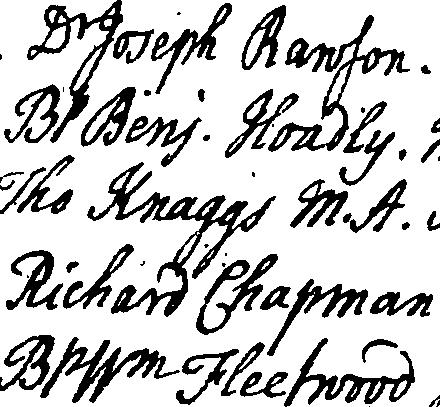 Dr Joseph Rawson.
Bp Benj. Hoadly.
Tho Knaggs M.A.
Richard Chapman
Bp Wm Fleetwood